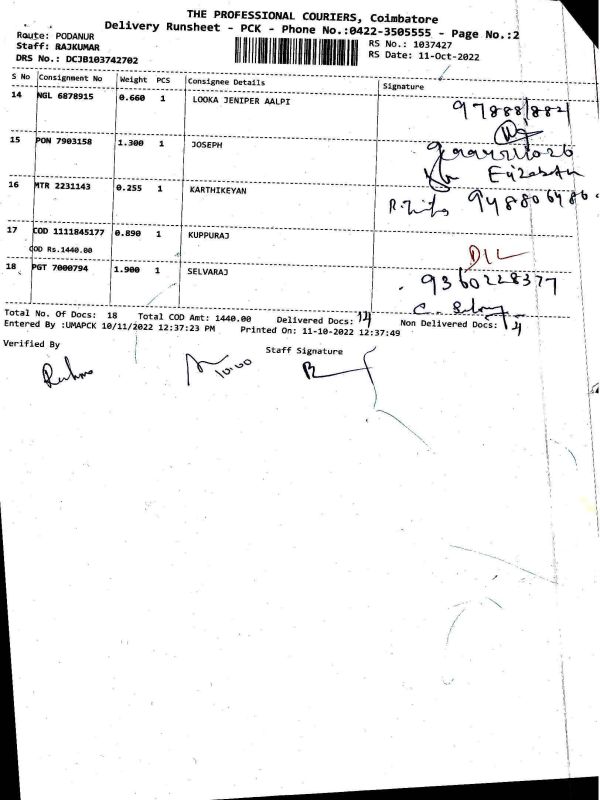 THE PROFESSIONAL COURIERS, Coimbatore
Delivery Runsheet - PCK - Phone No.:0422-3505555 - Page No.:2
Route: PODANUR
Staff: RAJKUMAR
DRS No.: DCJB103742702
RS No.: 1037427
RS Date: 11-Oct-2022
S No Consignment No Weight PCS Consignee Details Signature
14 NGL 6878915 0.660 1 LOOKA JENIPER AALPI
15 PON 7903158 1.300 1 JOSEPH
16 MTR 2231143 0.255 1 KARTHIKEYAN
17 COD 1111845177 0.890 1 KUPPURAJ
COD Rs.1440.00
D/L
18 PGT 7000794 1.900 1 SELVARAJ 9360228377
Total No. Of Docs: 18 Total COD Amt: 1440.00 Delivered Docs: 14 Non Delivered Docs: 4
Entered By :UMAPCK 10/11/2022 12:37:23 PM Printed On: 11-10-2022 12:37:49
Verified By Staff Signature
10:00